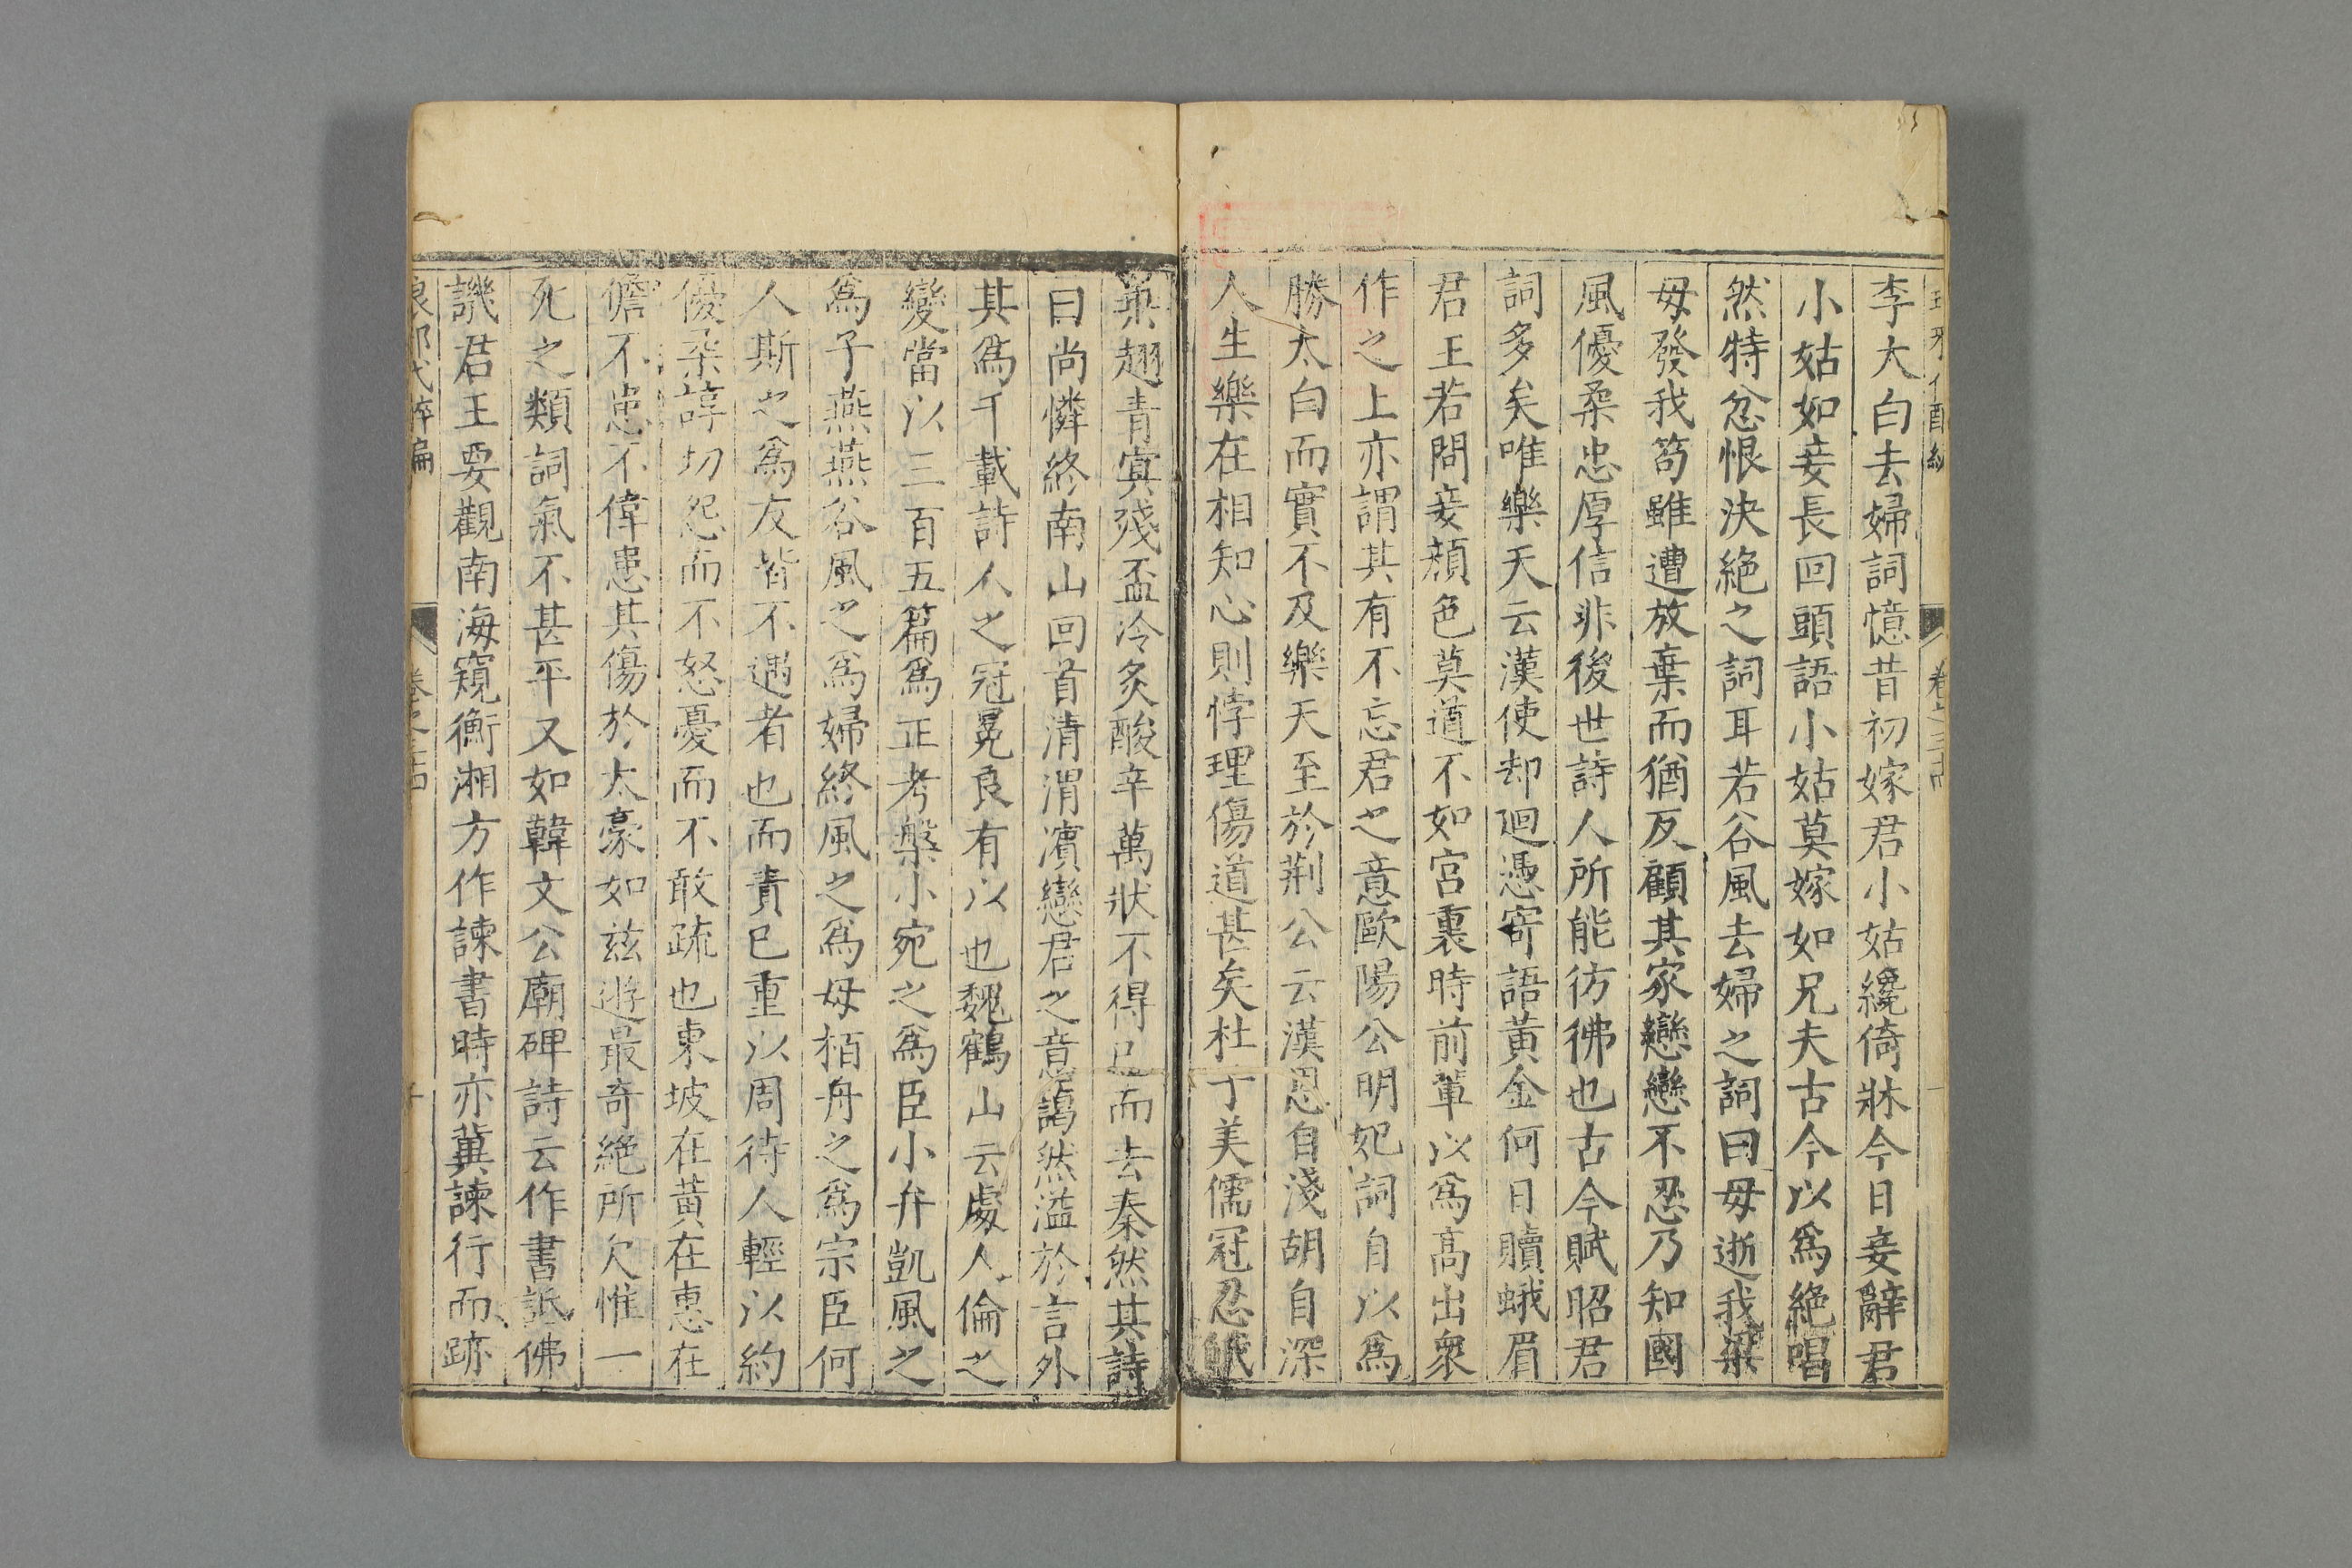 李太白去婦詞憶昔初嫁君小姑纔倚牀今日妾辭君
小姑如妾長回頭語小姑莫嫁如兄夫古今以爲絶唱
然特忿恨決絶之詞耳若谷風去婦之詞曰毋逝我梁
毋發我笱雖遭放棄而猶反顧其家戀戀不忍乃知國
風優柔忠厚信非後世詩人所能彷彿也古今賦昭君
詞多矣唯樂天云漢使却迴憑寄語黃金何日贖蛾眉
君王若問妾顔色莫道不如宮裏時前軰以爲髙出衆
作之上亦謂其有不忘君之意歐陽公明妃詞自以爲
勝太白而實不及樂天至於荆公云漢恩自淺胡自深
人生樂在相知心則悖理傷道甚矣杜子美儒冠忍餓
垂翅青冥殘盃冷炙酸辛萬狀不得已而去秦然其詩
曰尚憐終南山回首清渭濱戀君之意藹然溢於言外
其爲千載詩人之冠冕良有以也魏鶴山云處人倫之
變當以三百五篇爲正考槃小宛之爲臣小弁凱風之
爲子燕燕谷風之爲婦終風之爲母栢舟之爲宗臣何
人斯之爲友皆不遇者也而責已重以周待人輕以約
優柔諄切怨而不怒憂而不敢疏也東坡在黃在惠在
儋不患不偉患其傷於太豪如兹遊最奇絶所欠惟一
死之類詞氣不甚平又如韓文公廟碑詩云作書詆佛
譏君王要觀南海窺衡湘方作諫書時亦冀諫行而跡